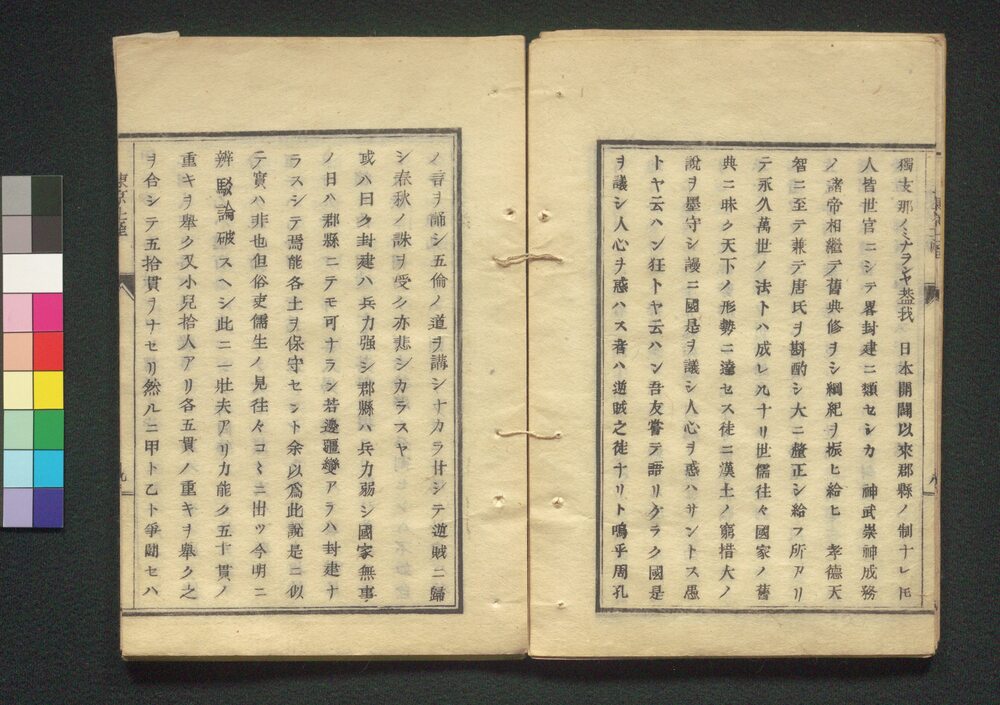 獨支那ノミナランヤ蓋我　日本開闢以來郡縣ノ制ナレ𪜈
人皆世官ニシテ畧封建ニ類セシカ　神武崇神成務
ノ諸帝相繼テ舊典修ヲシ綱紀ヲ振ヒ給ヒ　孝德天
智ニ至テ兼テ唐氏ヲ斟酌シ大ニ釐正シ給フ所アリ
テ永久萬世ノ法トハ成レ凡十リ世儒往々國家ノ舊
典ニ昧ク天下ノ形勢ニ達セス徒ニ漢土ノ窮措大ノ
說ヲ墨守シ謾ニ國是ヲ議シ人心ヲ惑ハサントス愚
トヤ云ハン狂トヤ云ハン吾友嘗テ語リケラク國是
ヲ議シ人心ヲ惑ハス者ハ逆賊之徒ナリト嗚乎周孔
ノ言ヲ誦シ五倫ノ道ヲ講シナカラ甘シテ逆賊ニ歸
シ春秋ノ誅ヲ受ク亦悲シカラスヤ
或ハ曰ク封建ハ兵力强シ郡縣ハ兵力弱シ國家無事
ノ日ハ郡縣ニテモ可ナラン若邊疆變アラハ封建ナ
ラスシテ焉能各土ヲ保守セント余以爲此說是ニ似
テ實ハ非也但俗吏儒生ノ見往々コヽニ出ツ今明ニ
辨駁論破スヘシ此ニ一壯夫アリカ能ク五十貫ノ
重キヲ舉ク又小兒拾人アリ各五貫ノ重キヲ舉ク之
ヲ合シテ五拾貫ヲナセリ然ルニ甲ト乙ト爭鬪セハ
九